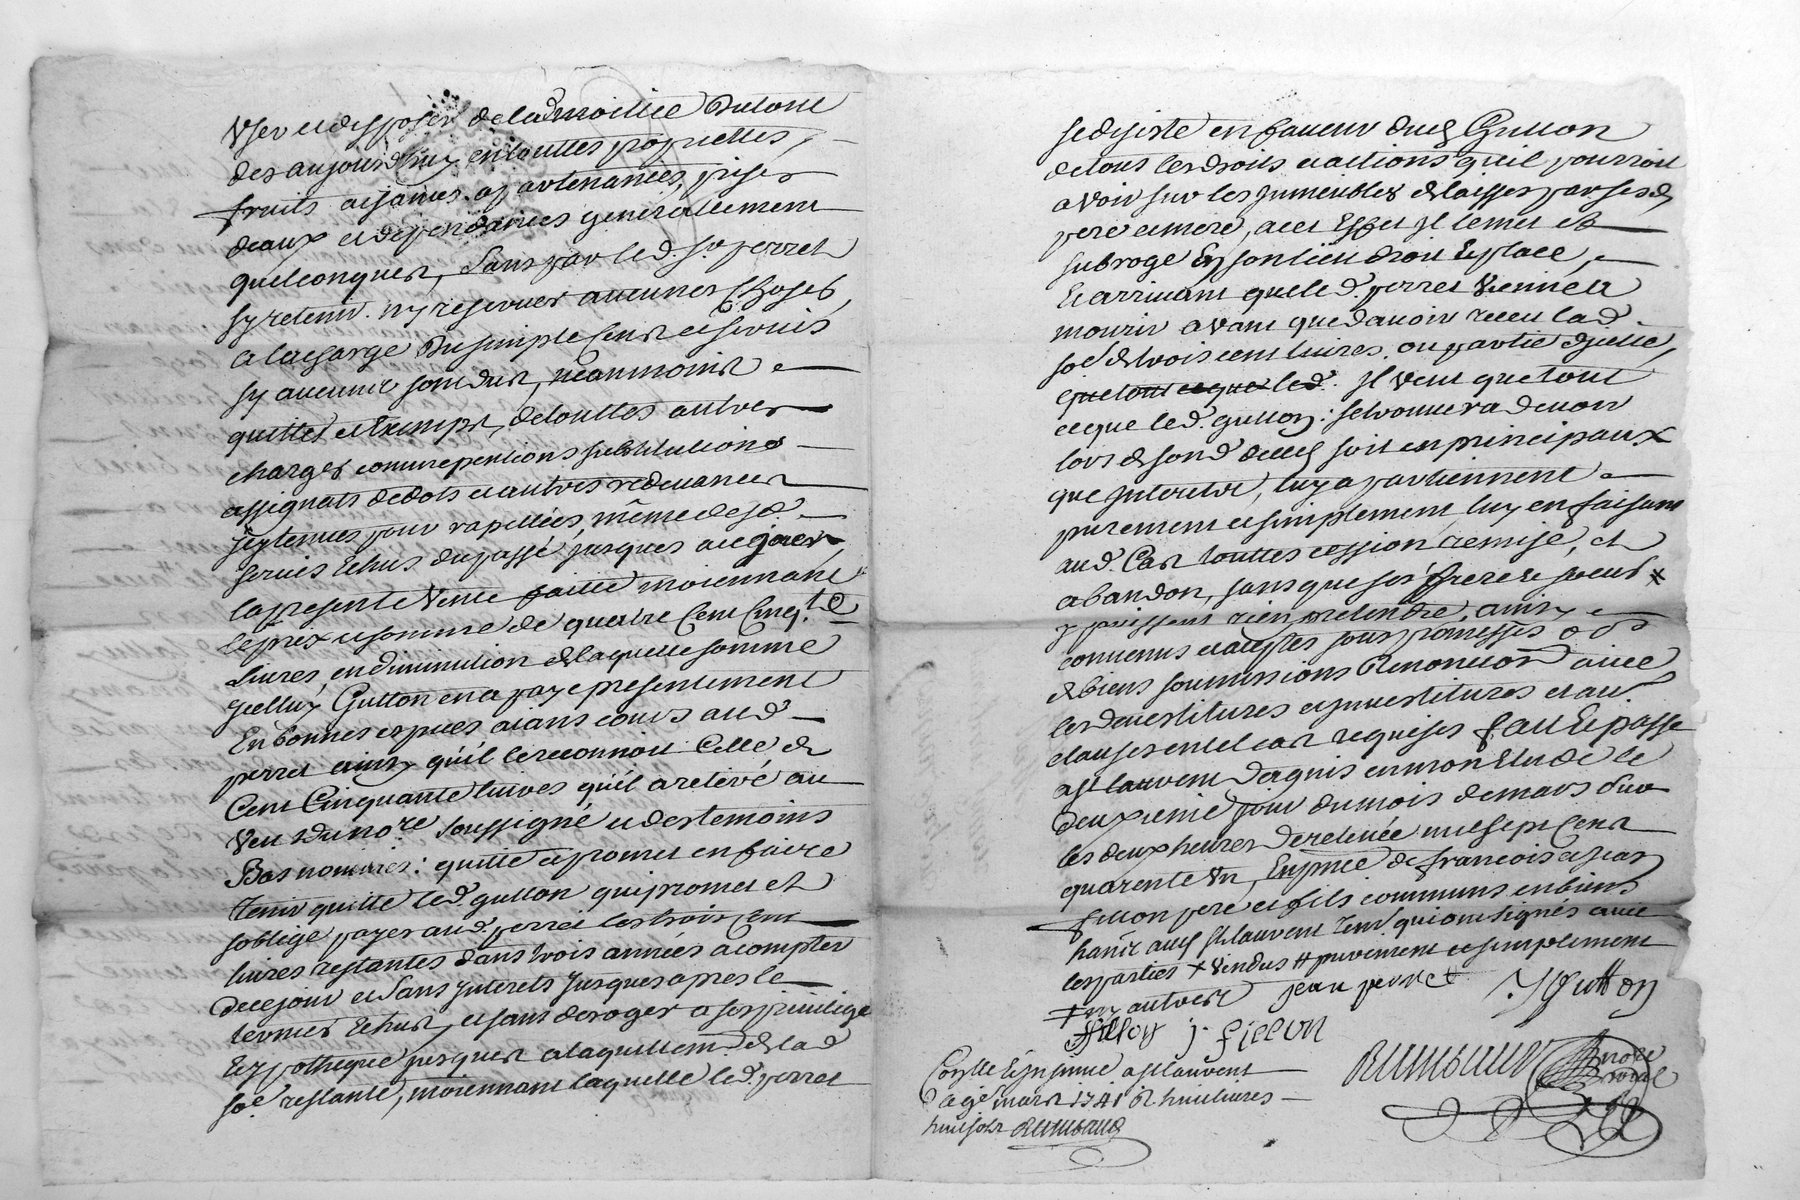 User et disposer de la d. moitiée du tout
des aujourdhuy en touttes proprietes,
fruits aisances apartenances, prises
deaux et dependances generallement
quelconques, sans par led. sr. perret
sy retenir ny reserver aucunes choses,
a la charge du simple cens et servis
sy aucunis sont dus, neanmoins
quittes et exempt, de touttes autres
charges comme pentions substitutions
assignats de dots et autres redevances
jcy tenues pour rapellées, même desd.
servis échus du passé jusques a ce jour
la presente vente faitte moiennant
le prix et somme de quatre cent cinqte
livres, en diminution de laquelle somme
jcelluy Gutton en a payé presentement
En bonnes especes aians cours aud.
perret ainsy qu'il le reconnoit celle de
Cent Cinquante livres qu'il a retiré au
Veu du nore soussigné et des temoins
Bas nommés: quitte et promet en faire
tenir quitte led. gutton qui promet et
soblige payer aud. perret les trois cent
livres restantes dans trois années a compter
de ce jour et sans jnterets jusques apres le
termes échus, et sans deroger a ses privilege
hypotheque jusques a laquittemt. de lad.
soe. restante, moiennant laquelle led. perret
se desiste en faveur dud. Gutton
de tous les droits et actions qu'il pourroit
avoir sur les jmmeubles delaissés par sesd.
pere et mere, a cet effet jl le met et
subroge En son lieu droit Et place,
Et arrivant que led. perret Vienne a
mourir avant que d'avoir receu lad.
soe. de trois cent livres, ou partie djcelle,
que tout ce que led. jl veut que tout
ce que led. gutton: se trouvera devoir
lors de son d. deces soit en principaux
que jnterets, luy apartiennent
purement et simplement, luy en faisant
aud. Cas touttes cession remise, et
abandon, sans que ses frere et soeurs x
y puissent rien pretendre, ainsy
convenus et acceptés sous promesses
de biens soumissions Renonciaon avec
les devestitures et jnvestitures et au.
clauses en tel cas requises fait Et passé
a st laurent Dagnis en mon Etude le
deuxieme jour du mois de mars sur
les deux heures de relevée mil sept cent
quarente un, En pnce de francois et jean
fillon pere et fils communs en biens
hants aud. st laurent tem. qui ont signés avec
les parties x vendus # purement et simplement
# ny autres jean perret JGutton
ffillon j. fillon
Conlle Et jnsinué a st laurent
D'agni mars 1741 R huit livres
huit sols Reumond
Reumond nore
royal